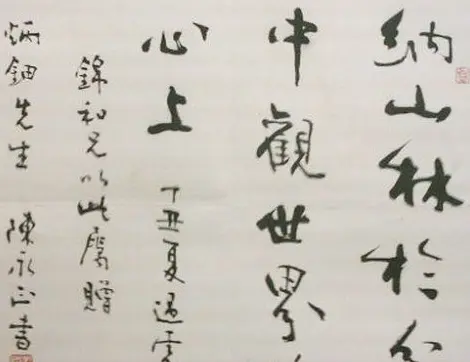 納山林於
中觀世界
心上 丁丑夏過雲
錦和兄以此屬贈
炳鈿先生 陳永正書